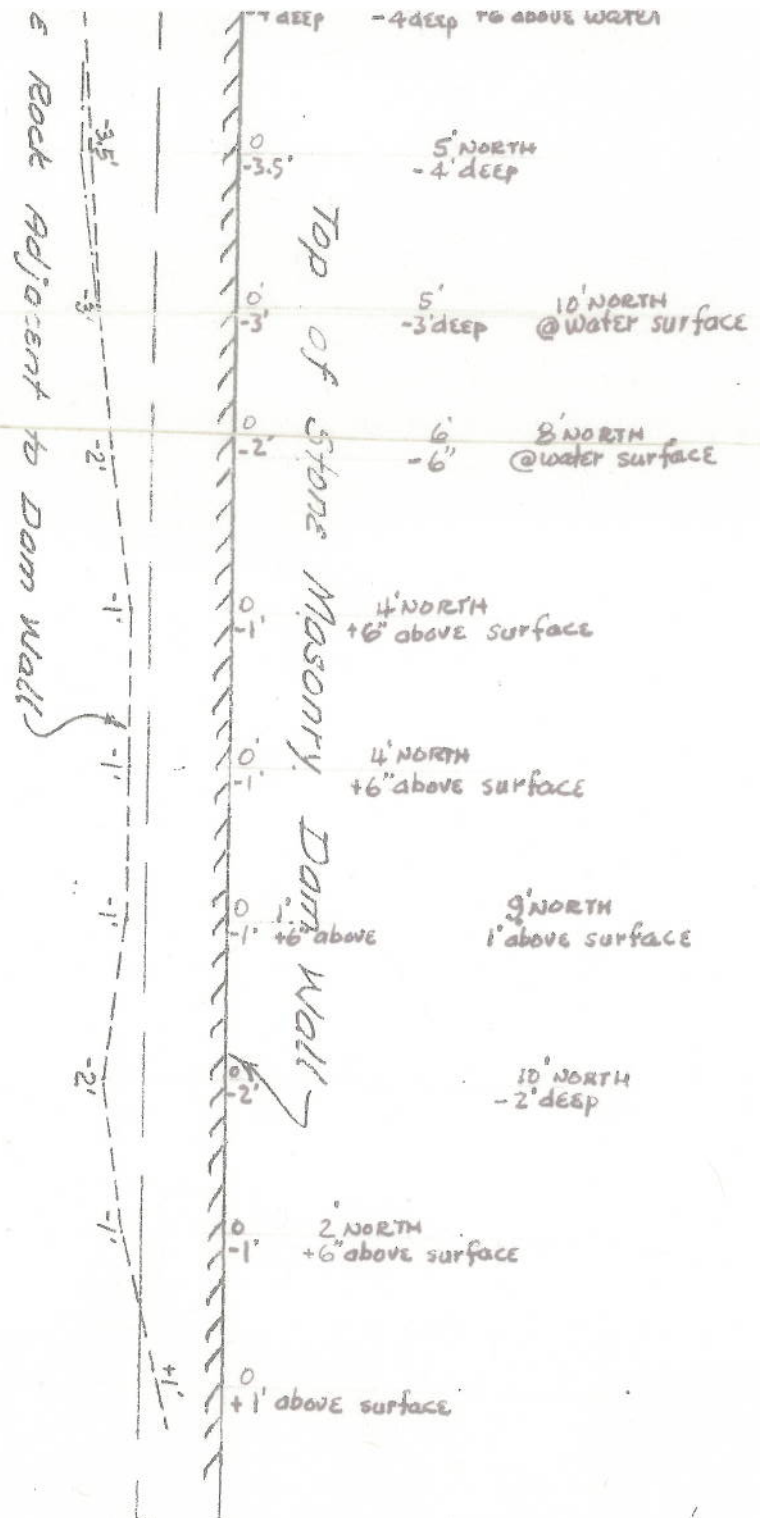 -4deep +6 above water
0
-3.5'
5' NORTH
-4' deep
0'
-3'
5'
-3' deep
10' NORTH
@ water surface
0
-2'
6'
-6"
8' NORTH
@ water surface
0
-1'
4' NORTH
+6" above surface
0'
-1'
4' NORTH
+6" above surface
0
-1'
1'
+6" above
9' NORTH
1' above surface
0
-2'
10' NORTH
-2' deep
0
-1'
2' NORTH
+6" above surface
0
+1' above surface
Top of Stone Masonry Dam Wall
-3.5'
-3'
-2'
-1'
-1'
-1'
-2'
-1'
+1'
Rock Adjacent to Dam Wall